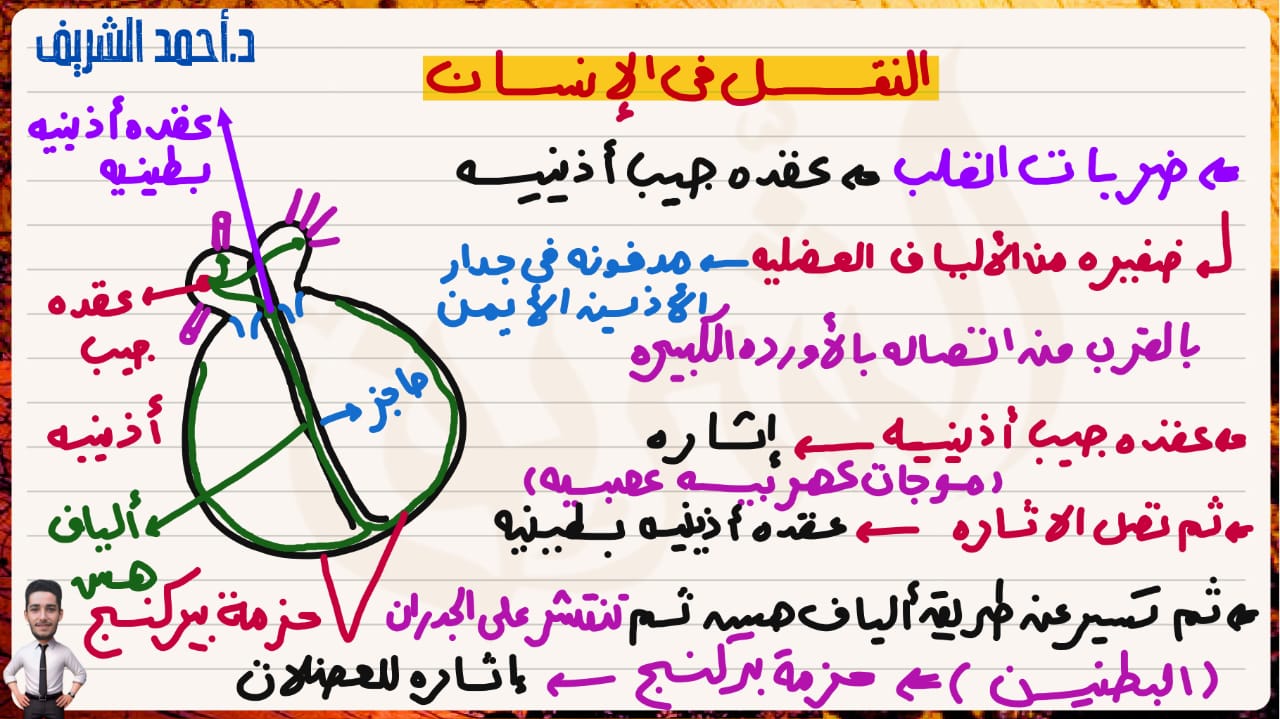 د.أحمد الشريف
النقل في الإنسان
ضربات القلب ← عقده جيب أذينيه
ضفيره من الألياف العضليه ← مدفونه في جدار
الأذين الأيمن
بالقرب من اتصاله بالأورده الكبيره
عقده جيب أذينيه ← إثاره
(موجات كهربيه عصبيه)
ثم تصل الاثاره ← عقده أذينيه بطينيه
ثم تسير عن طريق ألياف هس ثم تنتشر على الجدران
(البطنين) ← حزمة بيركنج ← إثاره للعضلات
عقده أذينيه
بطينيه
عقده
جيب
أذينيه
حاجز
ألياف
هس
حزمة بيركنج